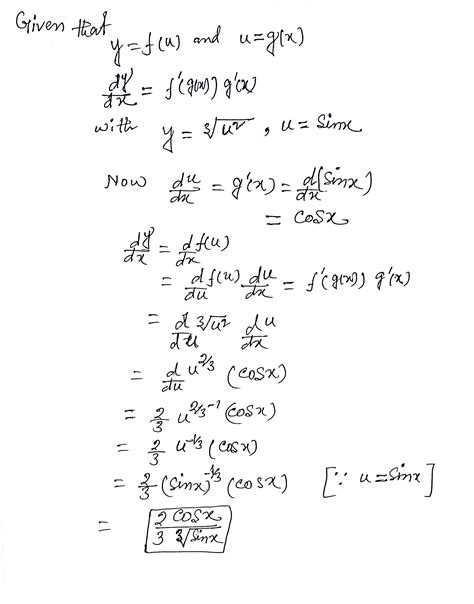 Given that
y = f(u) and u = g(x)
dy/dx = f'(g(x)) g'(x)
with y = ∛u² , u = sinx
Now du/dx = g'(x) = d/dx (sinx)
= cosx
dy/dx = d/dx f(u)
= d/du f(u) du/dx = f'(g(x)) g'(x)
= d/du ∛u² du/dx
= d/du u^2/3 (cosx)
= 2/3 u^2/3-1 (cosx)
= 2/3 u^-1/3 (cosx)
= 2/3 (sinx)^-1/3 (cosx) [∵ u = sinx]
= 2 cosx / 3 ∛sinx